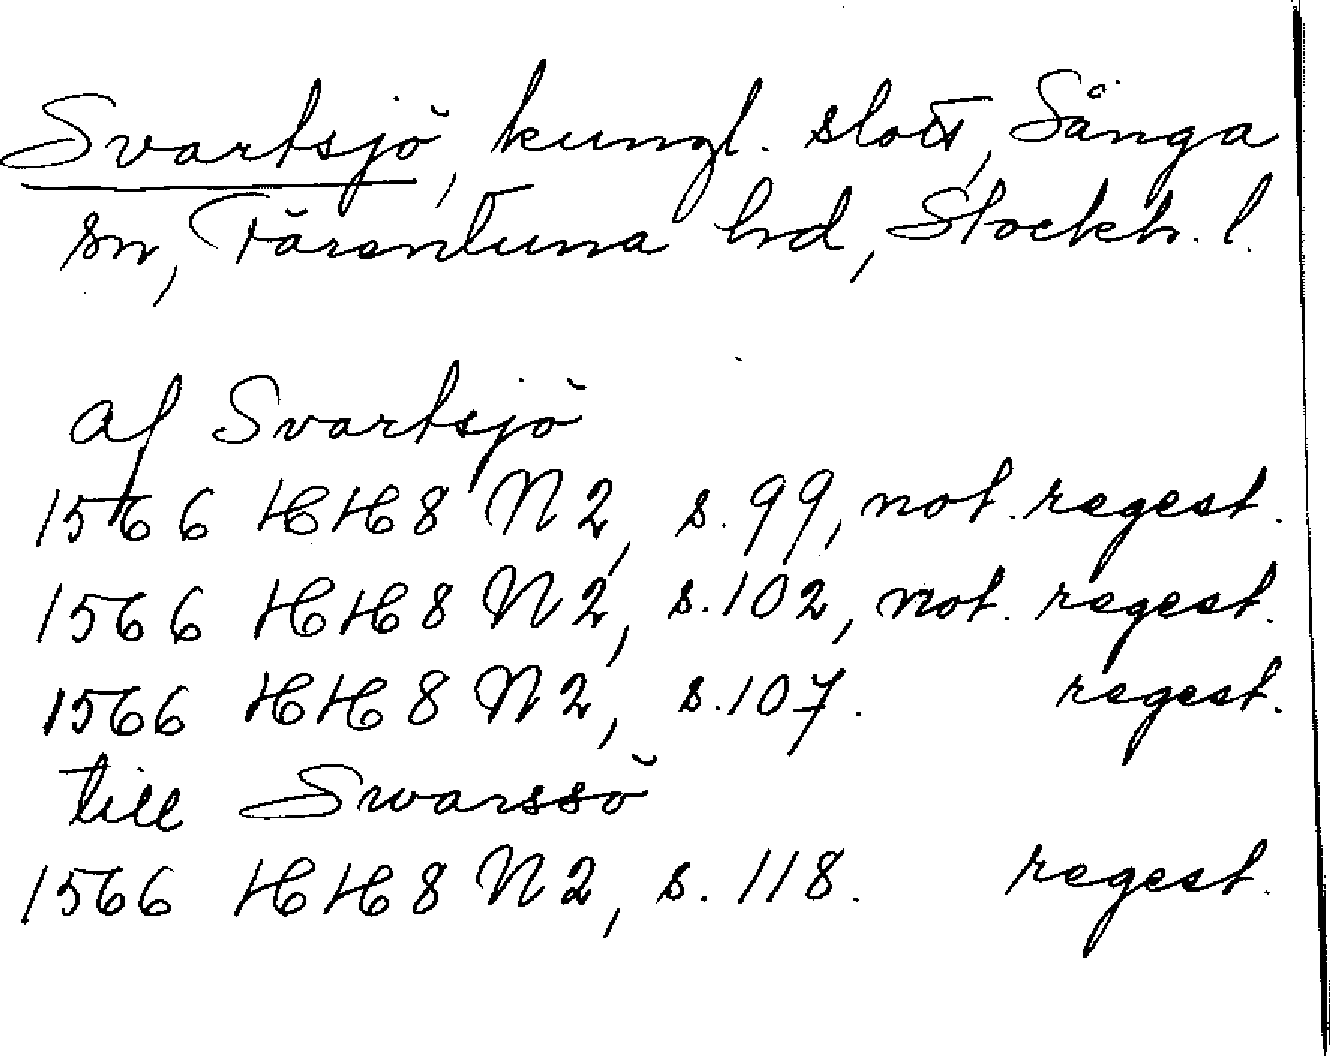 Svartsjö, kungl. slott, Sånga
sn, Färentuna hd, Stockh. l.
af Svartsjö
1566 HH 8 N 2, s. 99, not. regest.
1566 HH 8 N 2, s. 102, not. regest.
1566 HH 8 N 2, s. 107. regest.
till Swarssö
1566 HH 8 N 2, s. 118. regest.